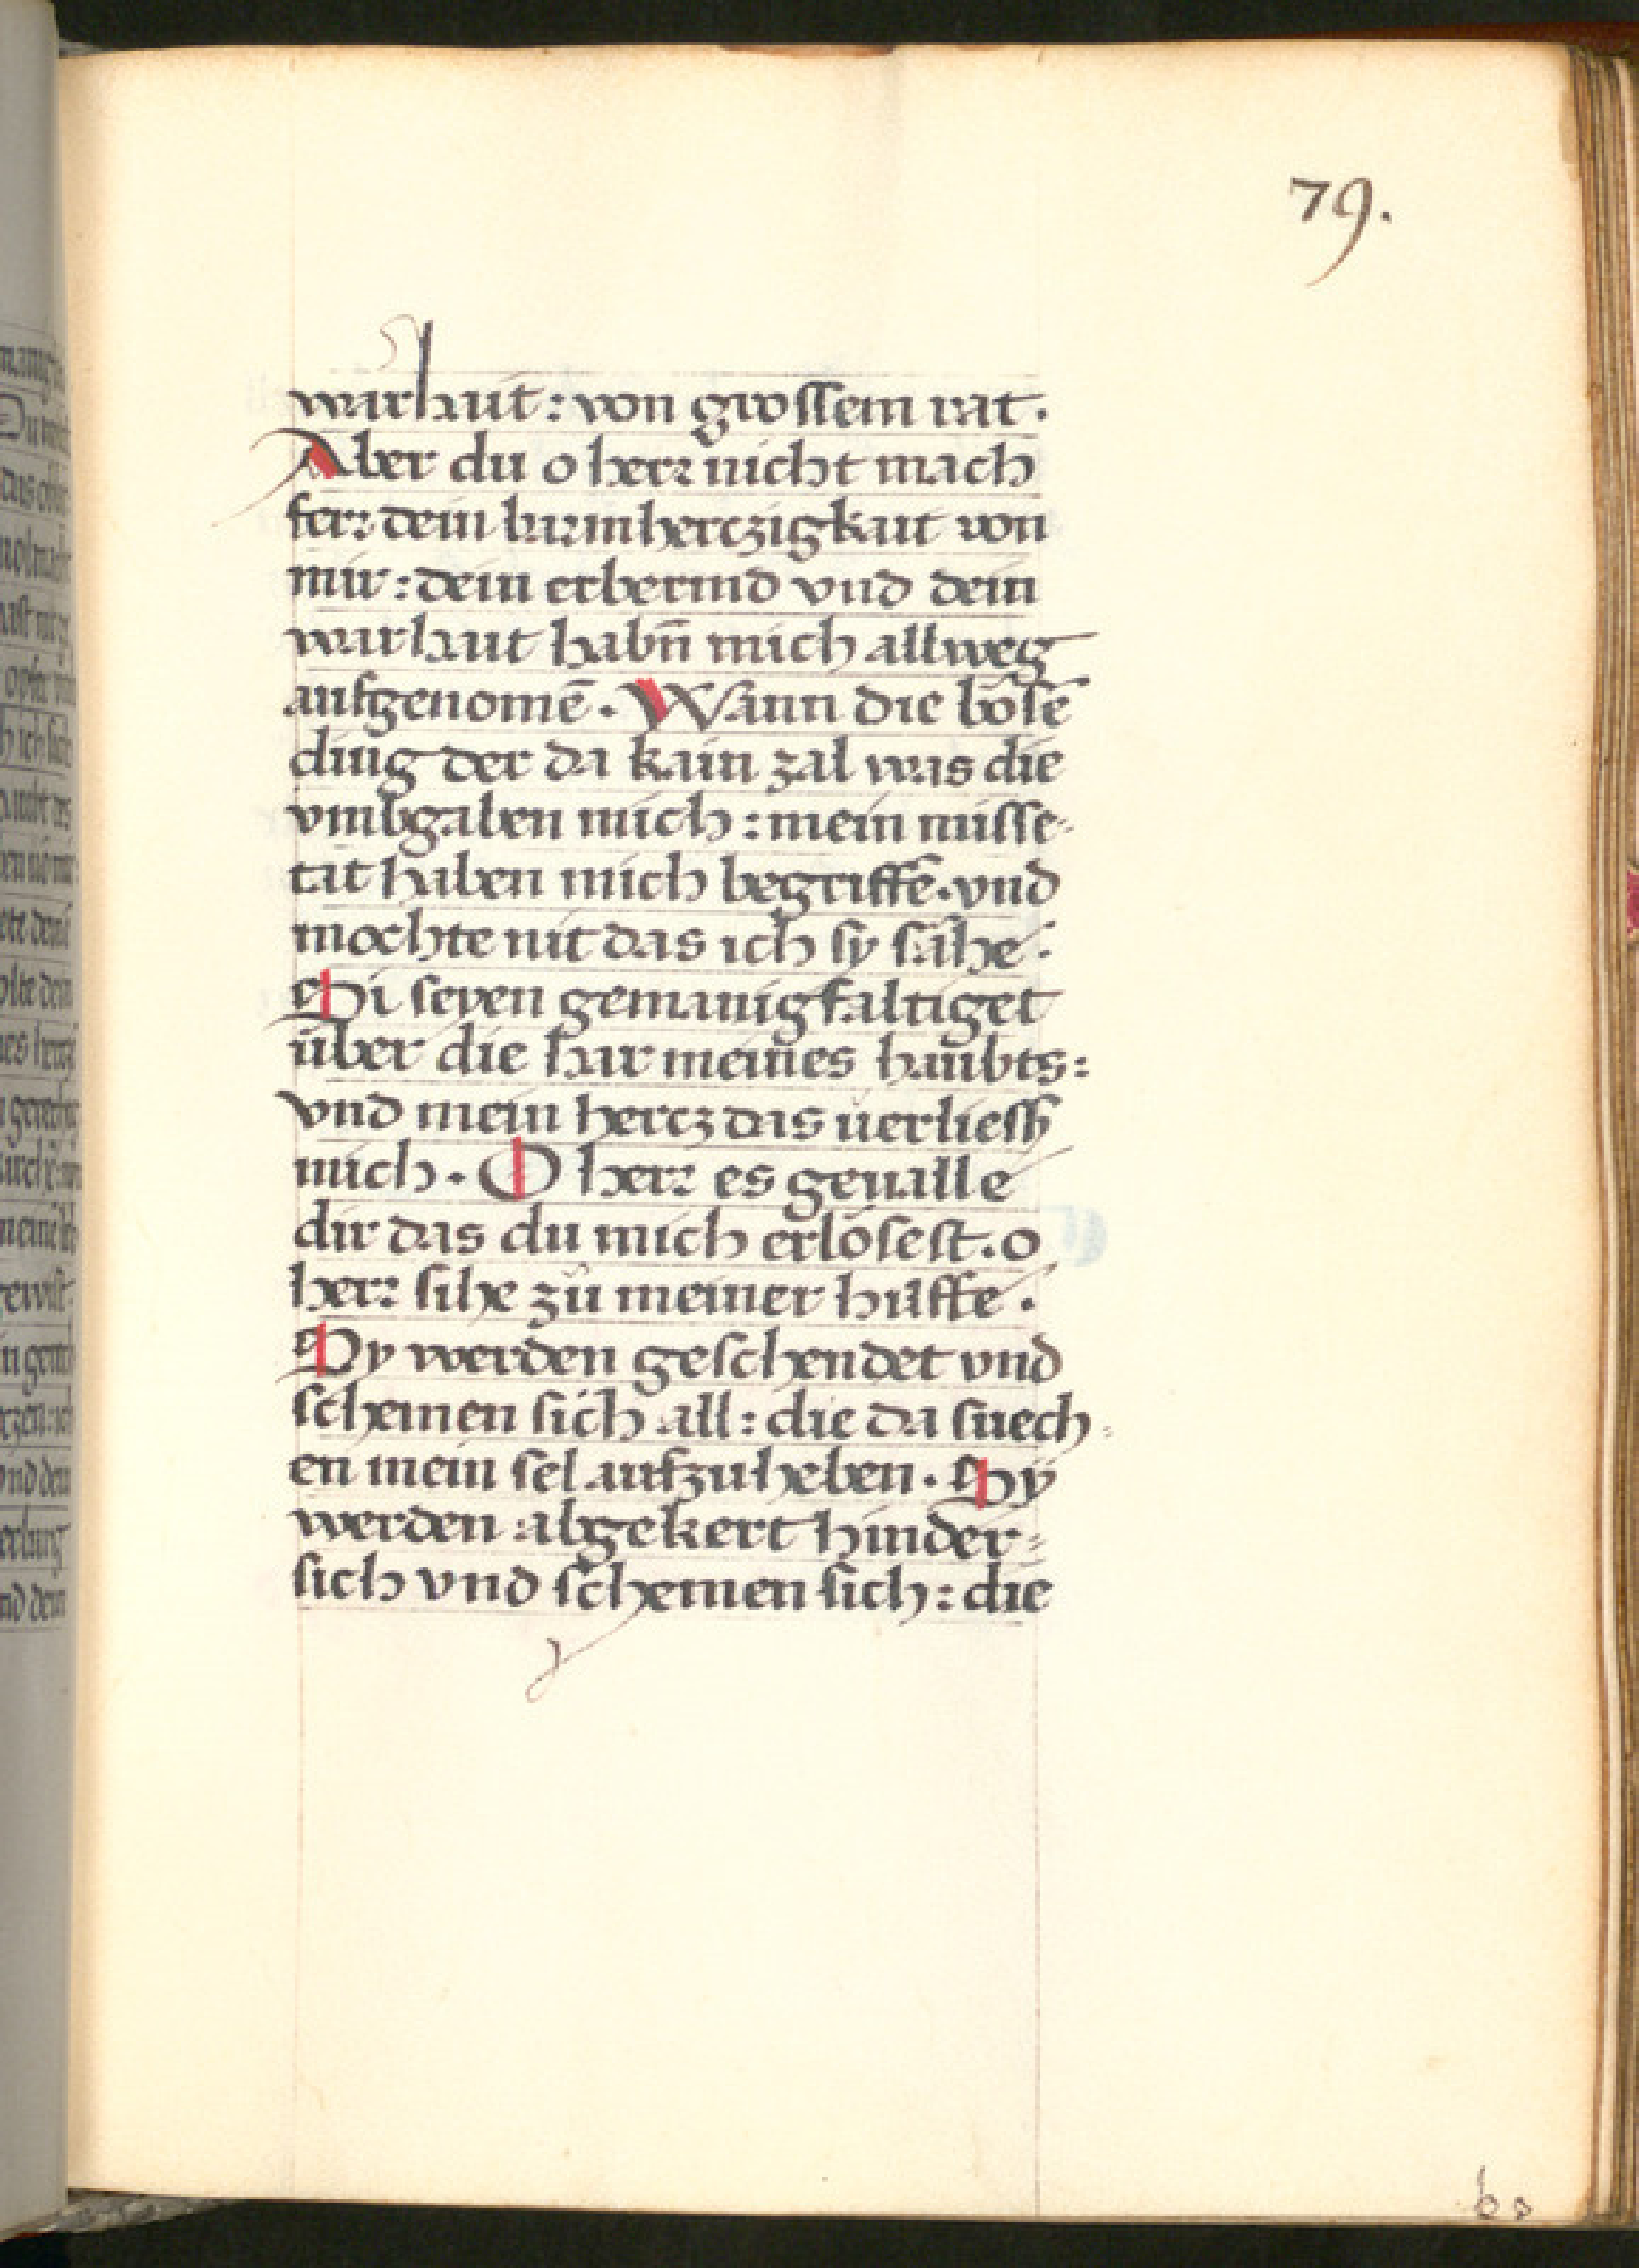 79.
warhait: von grossem rat.
Aber du o herr nicht mach
ferr dein barmherczigkait von
mir: dein erbermd vnd dein
warhait habn̄ mich allweg
aufgenomē. Wann die bösē
ding der da kain zal was die
vmbgaben mich: mein misse-
tat haben mich begriffē. vnd
mochte nit das ich sy sähe.
Si seyen gemanigfaltiget
über die har meines haubts:
vnd mein hercz das uerliess
mich. O herr es geualle
dir das du mich erlösest. o
herr sihe zů meiner hilffe.
Sy werden geschendet vnd
schemen sich all: die da suech-
en mein sel aufzuheben. Sÿ
werden abgekert hinder-
sich vnd schemen sich: die